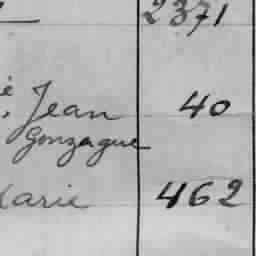 2371
Jean 40
Gonzague
Marie 462